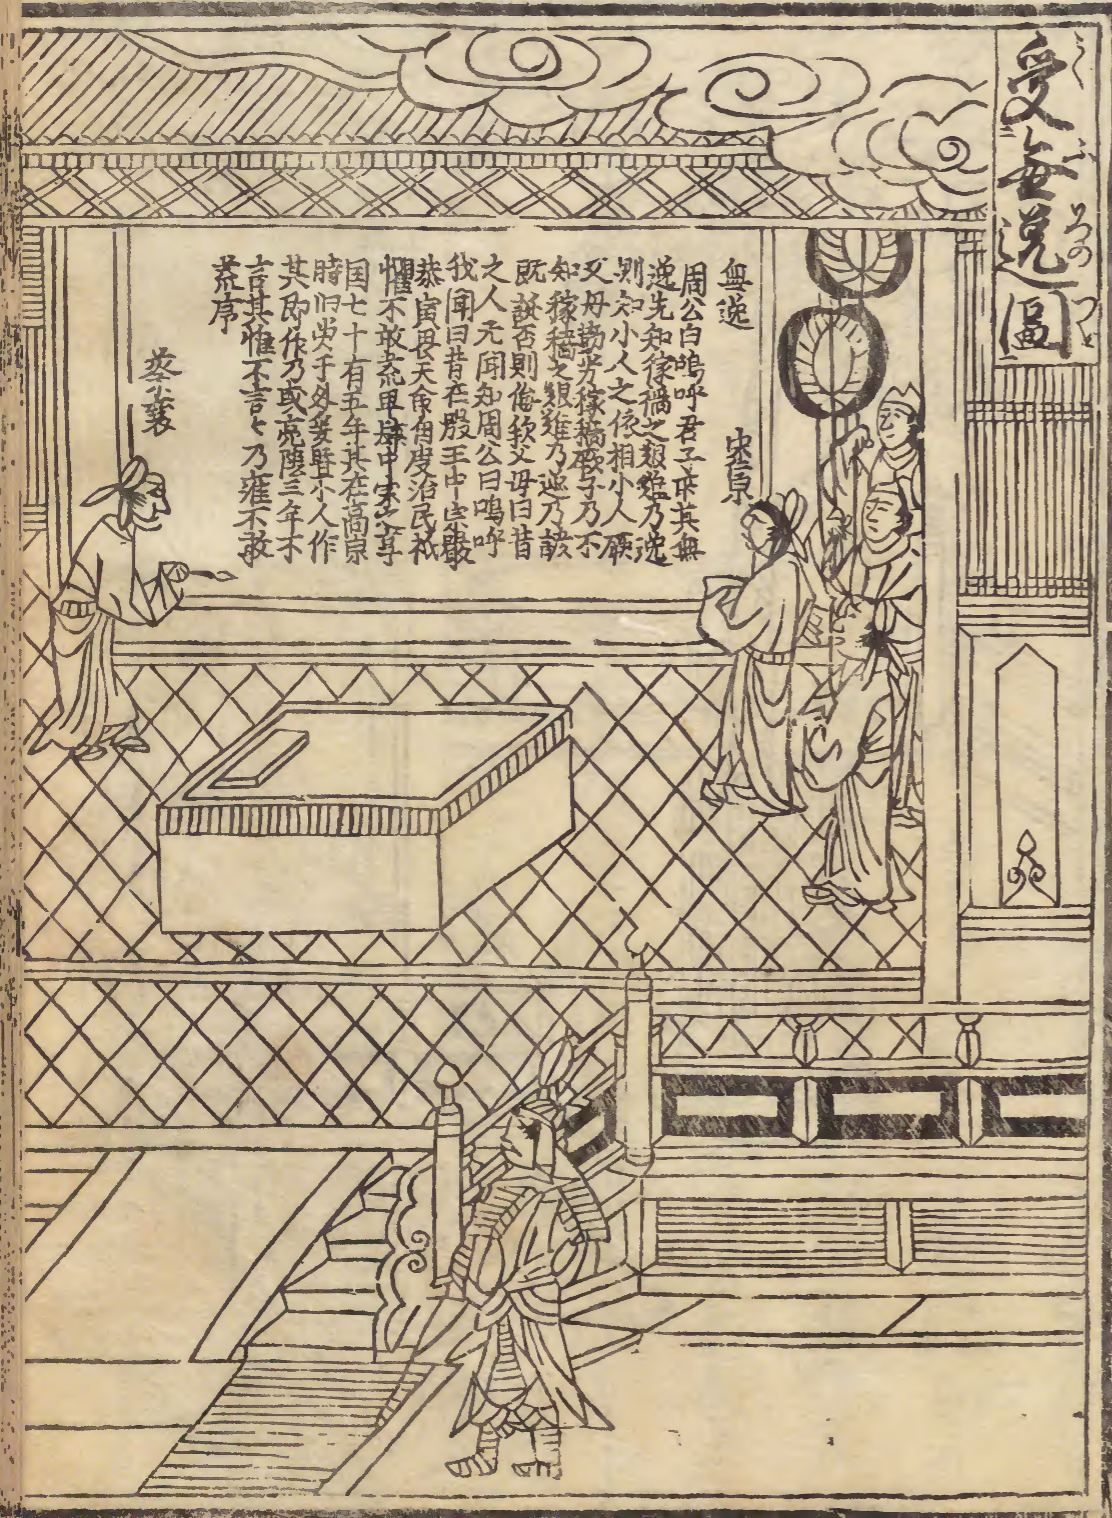 受無逸圖
無逸
周公曰嗚呼君子所其無
逸先知稼穡之艱難乃逸
則知小人之依相小人厥
父母勤労稼穡厥子乃不
知稼穡之艱難乃逸乃諺
既誕否則侮厥父母曰昔
之人无聞知周公曰嗚呼
我聞曰昔在殷王中宗嚴
恭寅畏天命自度治民祗
懼不敢荒寧肆中宗之享
国七十有五年其在高宗
時旧労于外爰曁小人作
其即作乃或亮陰三年不
言其惟不言々乃雍不敢
荒序
蔡襄